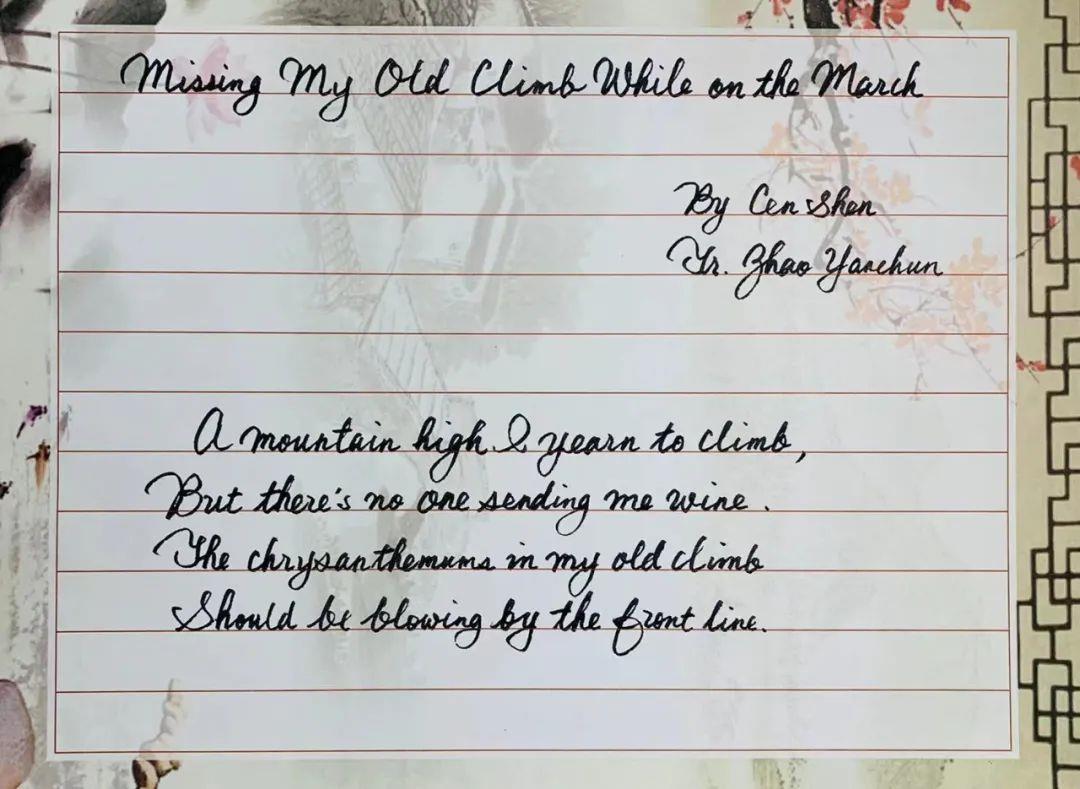 Missing My Old Climb While on the March
By Cen Shen
Tr. Zhao Yanchun
A mountain high I yearn to climb,
But there's no one sending me wine.
The chrysanthemums in my old climb
Should be blowing by the front line.